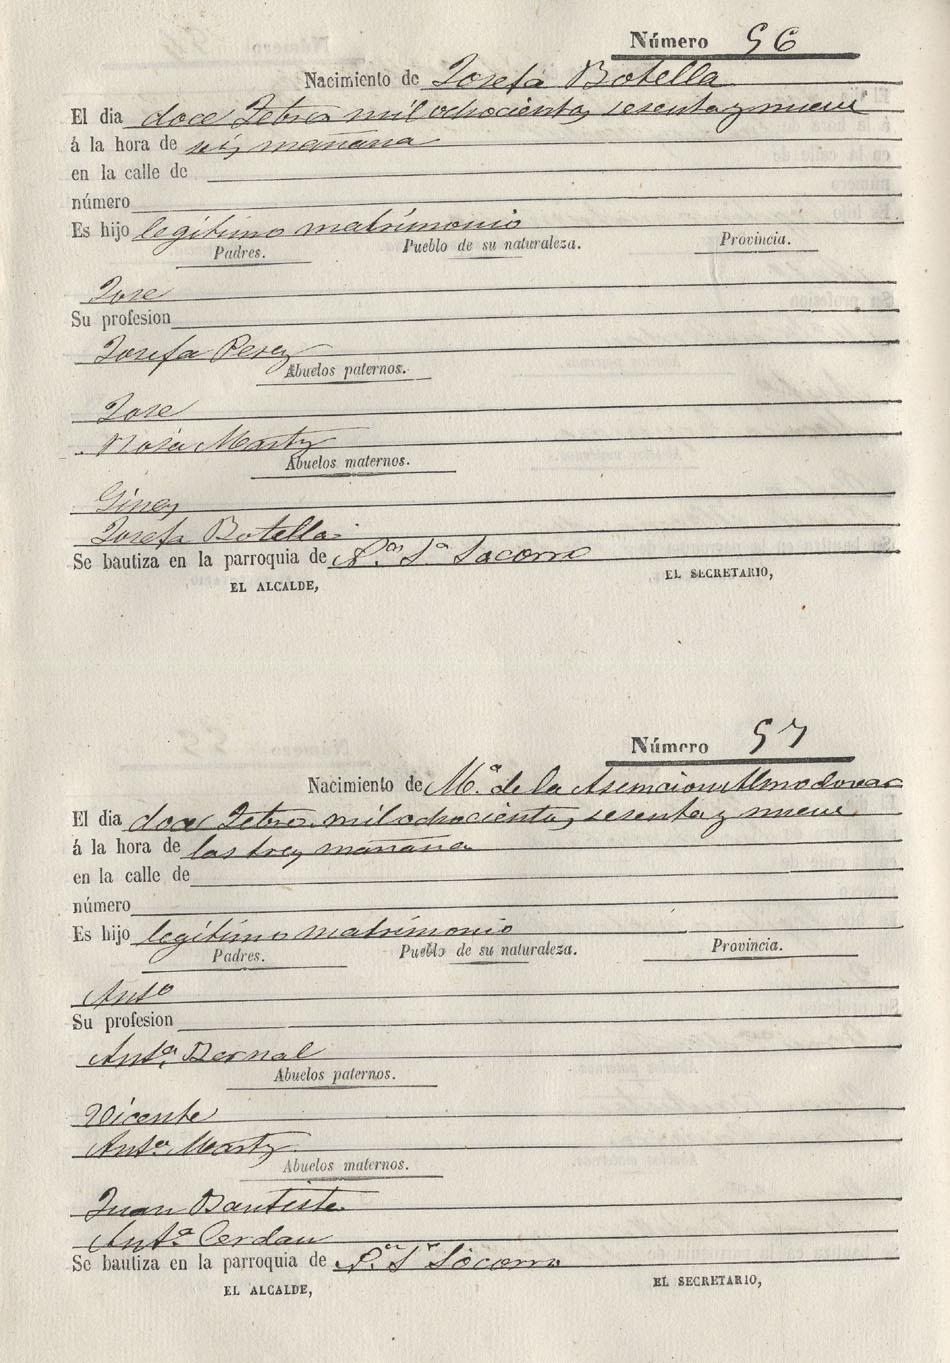 Número 56
Nacimiento de Josefa Botella
El dia doce Febro mil ochocientos sesenta y nueve
á la hora de seis mañana
en la calle de
número
Es hijo legítimo matrimonio
Padres. Pueblo de su naturaleza. Provincia.
Jose
Su profesion
Josefa Perez
Abuelos paternos.
Jose
Rosa Martz
Abuelos maternos.
Gines
Josefa Botella
Se bautiza en la parroquia de Ntra Sra Socorro
EL ALCALDE, EL SECRETARIO,
Número 57
Nacimiento de Mª de la Asuncion Almodovar
El dia doce Febro mil ochocientos sesenta y nueve
á la hora de las tres mañana
en la calle de
número
Es hijo legítimo matrimonio
Padres. Pueblo de su naturaleza. Provincia.
Antº
Su profesion
Antª Bernal
Abuelos paternos.
Vicente
Antª Martz
Abuelos maternos.
Juan Bautista
Antª Cerdan
Se bautiza en la parroquia de Ntra Sra Socorro
EL ALCALDE, EL SECRETARIO,